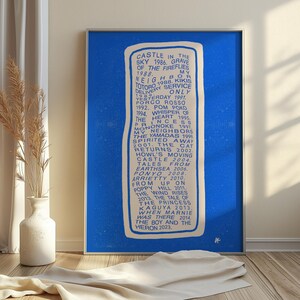 CASTLE IN THE
SKY 1986. GRAVE
OF THE FIREFLIES
1988. MY
NEIGHBOR
TOTORO 1988. KIKIS
DELIVERY SERVICE
ONLY
YESTERDAY 1991.
PORCO ROSSO
1992. POM POKO
1994. WHISPER OF
THE HEART 1995.
PRINCESS
MONONOKE 1997.
MY NEIGHBORS
THE YAMADAS 1999.
SPIRITED AWAY
2001. THE CAT
RETURNS 2002.
HOWL'S MOVING
CASTLE 2004.
TALES FROM
EARTHSEA 2006.
PONYO 2008.
ARRIETTY 2010.
FROM UP ON
POPPY HILL 2011.
THE WIND RISES
2013. THE TALE OF
THE PRINCESS
KAGUYA 2013.
WHEN MARNIE
WAS THERE 2014.
THE BOY AND THE
HERON 2023.